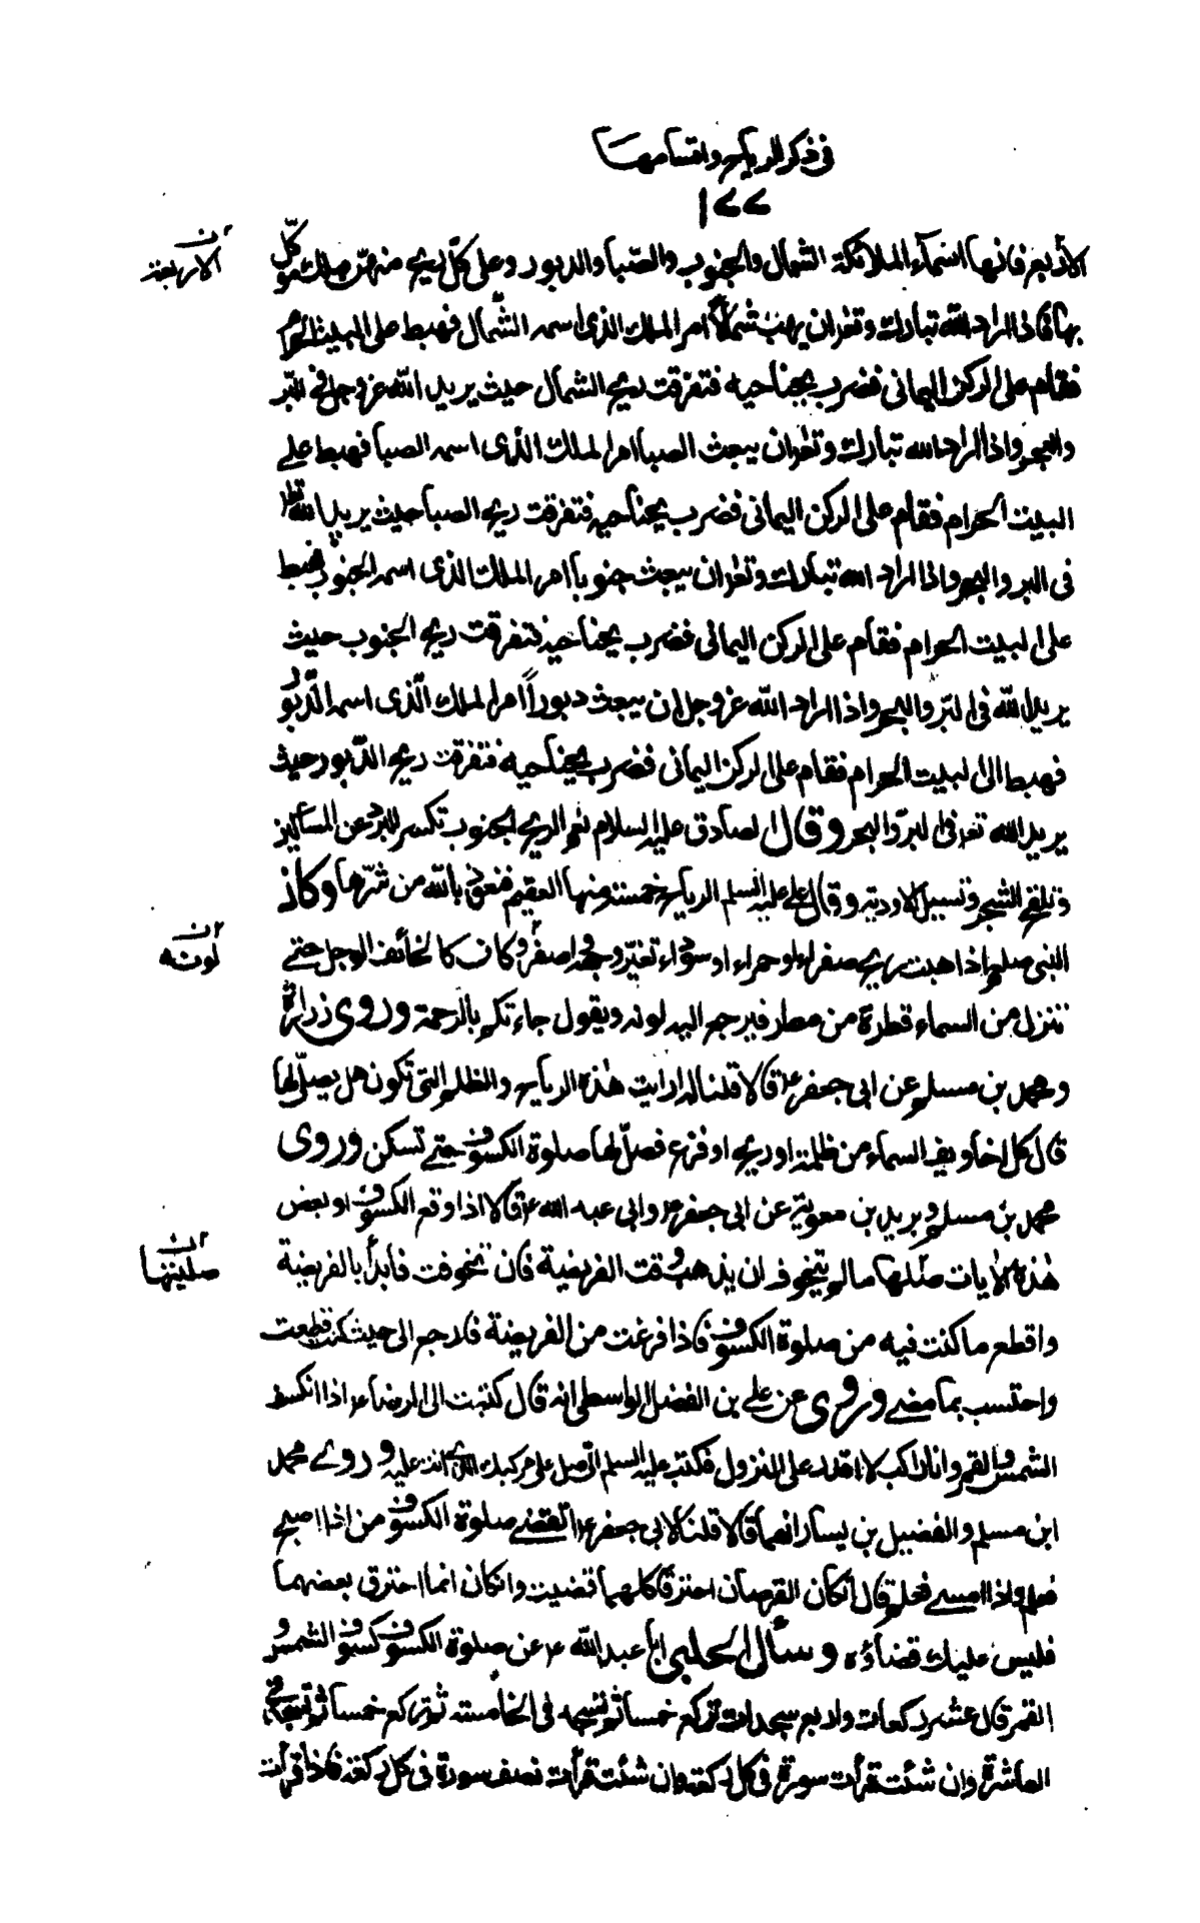 في ذكر الرياح واقسامها
١٧٧
الأربع فانها اسماء الملائكة الشمال والجنوب والصّبا والدبور وعلى كلّ ريح منهنّ ملك موكّل
الاربعة
بها فاذا اراد الله تبارك وتعا ان يهبّ شمالاً امر الملك الذى اسمه الشّمال فهبط على البيت الحرام
فقام على الركن اليمانى فضرب بجناحيه فتفرقت ريح الشمال حيث يريد الله عز وجل في البّر
والبحر واذا اراد الله تبارك وتعا ان يبعث الصبا امر الملك الذى اسمه الصبا فهبط على
البيت الحرام فقام على الركن اليمانى فضرب بجناحيه فتفرقت ريح الصبا حيث يريد الله تعا
فى البر والبحر واذا اراد الله تبارك وتعا ان يبعث جنوبا امر الملك الذى اسمه الجنوب فهبط
على البيت الحرام فقام على الركن اليمانى فضرب بجناحيه فتفرقت ريح الجنوب حيث
يريد الله فى البّر والبحر واذا اراد الله عز وجل ان يبعث دبوراً امر الملك الّذى اسمه الدّبور
فهبط الى البيت الحرام فقام على الركن اليمانى فضرب بجناحيه فتفرقت ريح الدّبور حيث
يريد الله تعا فى البرّ والبحر وقال الصادق عليه السلام نعم الريح الجنوب تكسر البرد عن المساكين
وتلقح الشجر وتسيل الاودية وقال على عليه السلم الرياح خمسة منها العقيم فنعوذ بالله من شرّها وكان
النبى صلعم اذا هبت ريح صفراء او حمراء او سوداء تغيّر وجهه واصفرّ وكان كالخائف الوجل حتى
لونه
تنزل من السماء قطرة من مطر فيرجع اليه لونه ويقول جاءتكم بالرحمة وروى زرارة
ومحمد بن مسلم عن ابى جعفر ع قالا قلنا له ارايت هذه الرياح والظلم التى تكون هل يصلّى لها
قال كل اخاويف السماء من ظلمة او ريح او فزع فصلّ لها صلوة الكسوف حتى تسكن وروى
محمد بن مسلم وبريد بن معوية عن ابى جعفر ع وابى عبد الله ع قالا اذا وقع الكسوف او بعض
هذه الايات صلّها ما لم يتخوف ان يذهب وقت الفريضة فان تخوفت فابدأ بالفريضة
صليتها
واقطع ما كنت فيه من صلوة الكسوف فاذا فرغت من الفريضة فارجع الى حيث كنت قطعت
واحتسب بما مضى وروى عن على بن الفضل الواسطى انه قال كتبت الى الرضا ع اذا انكسف
الشمس والقمر وانا راكب لا اقدر على النزول فكتب عليه السلم الّى صل على مركبك الذى انت عليه وروى محمد
ابن مسلم والفضيل بن يسار انهما قالا قلنا لابى جعفر ع اتقضى صلوة الكسوف من اذا اصبح
فعلم واذا امسى فعلم قال ان كان القرصان احترقا كلهما قضيت وان كان انما احترق بعضهما
فليس عليك قضاؤه وسأل الحلبى ابا عبد الله ع عن صلوة الكسوف كسوف الشمس و
القمر قال عشر ركعات واربع سجدات تركع خمسا ثم تسجد فى الخامسة ثم تركع خمسا ثم تسجد في
العاشرة وان شئت قرأت سورة فى كل ركعة وان شئت قرأت نصف سورة فى كل ركعة فاذا قرأت